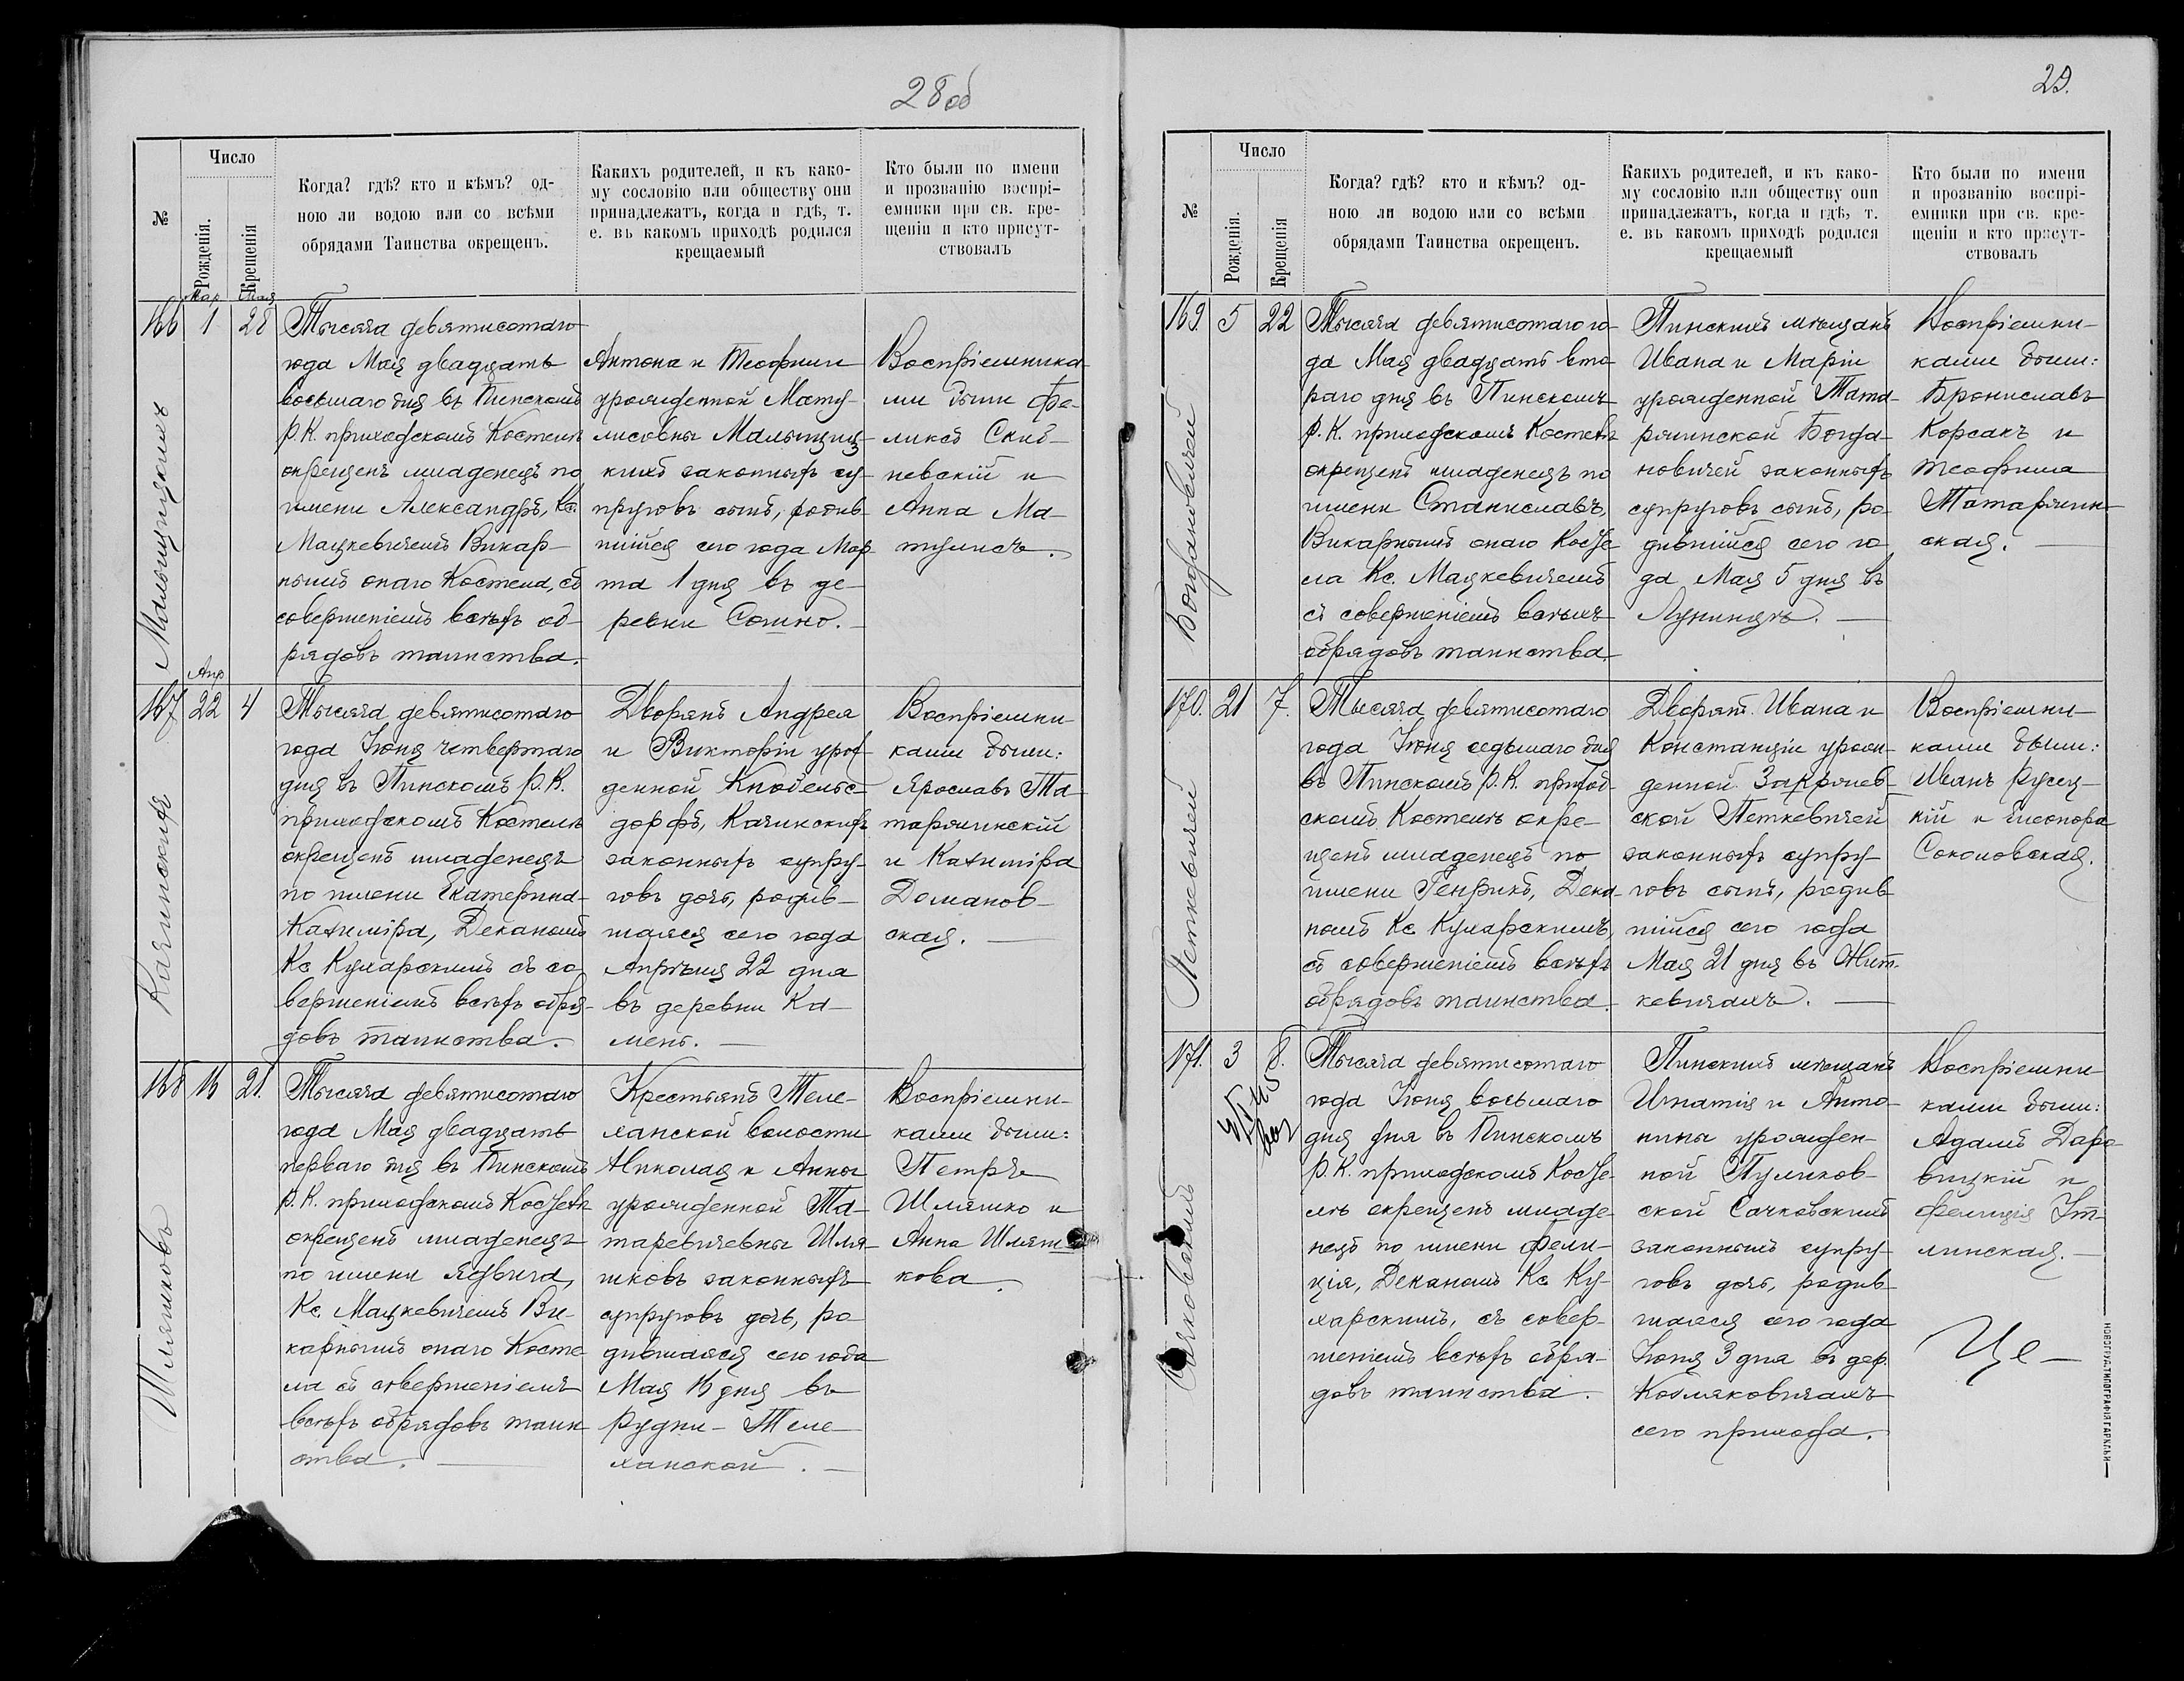 28об
№
Число
Рожденія.
Крещенія
Когда? гдѣ? кто и кѣмъ? од-
ною ли водою или со всѣми
обрядами Таинства окрещенъ.
Какихъ родителей, и къ како-
му сословію или обществу они
принадлежатъ, когда и гдѣ, т.
е. въ какомъ приходѣ родился
крещаемый
Кто были по имени
и прозванію воспрі-
емники при св. кре-
щеніи и кто присут-
ствовалъ
Мар Мая
166 1 28
Мальщицкихъ
Тысяча девятисотаго
года Мая двадцать
восьмаго дня въ Пинскомъ
Р.К. приходскомъ Костелѣ
окрещенъ младенецъ по
имени Александръ, Кс.
Мацкевичемъ Викар-
нымъ онаго Костела, съ
совершеніемъ всѣхъ об-
рядовъ таинства.
Антона и Теофили
урожденной Мату-
лисовны Мальщиц-
кихъ законныхъ су-
пруговъ сынъ, родив-
шійся сего года Мар
та 1 дня въ де-
ревни Сошно.
Воспріемника-
ми были Фе-
ликсъ Скиб-
невскій и
Анна Ма-
тулисъ.
Апр
167 22 4
Качинскихъ
Тысяча девятисотаго
года Іюня четвертаго
дня въ Пинскомъ Р.К.
приходскомъ Костелѣ
окрещенъ младенецъ
по имени Екатерина-
Казиміра, Деканомъ
Кс Кухарскимъ съ со
вершеніемъ всѣхъ обря-
довъ таинства.
Дворянъ Андрея
и Викторіи урож
денной Кнобельс-
дорфъ, Качинскихъ
законныхъ супру-
говъ дочь, родив-
шаяся сего года
Апрѣля 22 дня
въ деревни Ка-
мень.
Воспріемни-
ками были:
Ярославъ Та-
таржинскій
и Казиміра
Доманов-
ская.
168 16 21.
Шляшковъ
Тысяча девятисотаго
года Мая двадцать
перваго дня въ Пинскомъ
Р.К. приходскомъ Костелѣ
окрещенъ младенецъ
по имени Ядвига,
Кс. Мацкевичемъ Ви-
карнымъ онаго Косте
ла съ совершеніемъ
всѣхъ обрядовъ таин
ства.
Крестьянъ Теле-
ханской волости
Николая и Анны
урожденной Та-
таревичевны Шля-
шковъ законныхъ
супруговъ дочь, ро
дившаяся сего года
Мая 16 дня въ
Рудни-Теле-
ханской.
Воспріемни-
ками были:
Петръ
Шляшко и
Анна Шляш-
кова
29.
№
Число
Рожденія.
Крещенія
Когда? гдѣ? кто и кѣмъ? од-
ною ли водою или со всѣми
обрядами Таинства окрещенъ.
Какихъ родителей, и къ како-
му сословію или обществу они
принадлежатъ, когда и гдѣ, т.
е. въ какомъ приходѣ родился
крещаемый
Кто были по имени
и прозванію воспрі-
емники при св. кре-
щеніи и кто присут-
ствовалъ
169 5 22
Богдановичей
Тысяча девятисотаго го-
да Мая двадцать вто-
раго дня въ Пинскомъ
Р.К. приходскомъ Костелѣ
окрещенъ младенецъ по
имени Станиславъ,
Викарнымъ онаго Косте
ла Кс. Мацкевичемъ
съ совершеніемъ всѣхъ
обрядовъ таинства.
Пинскихъ мѣщанъ
Ивана и Маріи
урожденной Тата-
ржинской Богда-
новичей законныхъ
супруговъ сынъ, ро-
дившійся сего го
да Мая 5 дня въ
Лунинцѣ.
Воспріемни-
ками были:
Брониславъ
Корсакъ и
Теофила
Татаржин-
ская.
170. 21 7.
Петкевичей
Тысяча девятисотаго
года Іюня седьмаго дня
въ Пинскомъ Р.К. приход-
скомъ Костелѣ окре-
щенъ младенецъ по
имени Генрикъ, Дека-
номъ Кс Кухарскимъ,
съ совершеніемъ всѣхъ
обрядовъ таинства.
Дворянъ Ивана и
Констанціи урож-
денной Закржев-
ской Петкевичей
законныхъ супру-
говъ сынъ, родив
шійся сего года
Мая 21 дня въ Жит-
кевичахъ.
Воспріемни-
ками были:
Иванъ Русец-
кій и Элеонора
Соколовская.
171. 3 8.
Сачковскихъ
Тысяча девятисотаго
года Іюня восьмаго
дня дня въ Пинскомъ
Р.К. приходскомъ Косте-
лѣ окрещенъ младе-
нецъ по имени Фели-
ція, Деканомъ Кс Ку-
харскимъ, съ совер-
шеніемъ всѣхъ обря-
довъ таинства.
Пинскихъ мѣщанъ
Игнатія и Анто-
нины урожден-
ной Пуликов-
ской Сачковскихъ
законныхъ супру-
говъ дочь, родив-
шаяся сего года
Іюня 3 дня въ дер.
Козляковичахъ
сего прихода.
Воспріемни-
ками были:
Адамъ Даро-
вицкій и
Фелиція
НОВОГРУД. ТИПОГРАФІЯ ГАРКАВИ